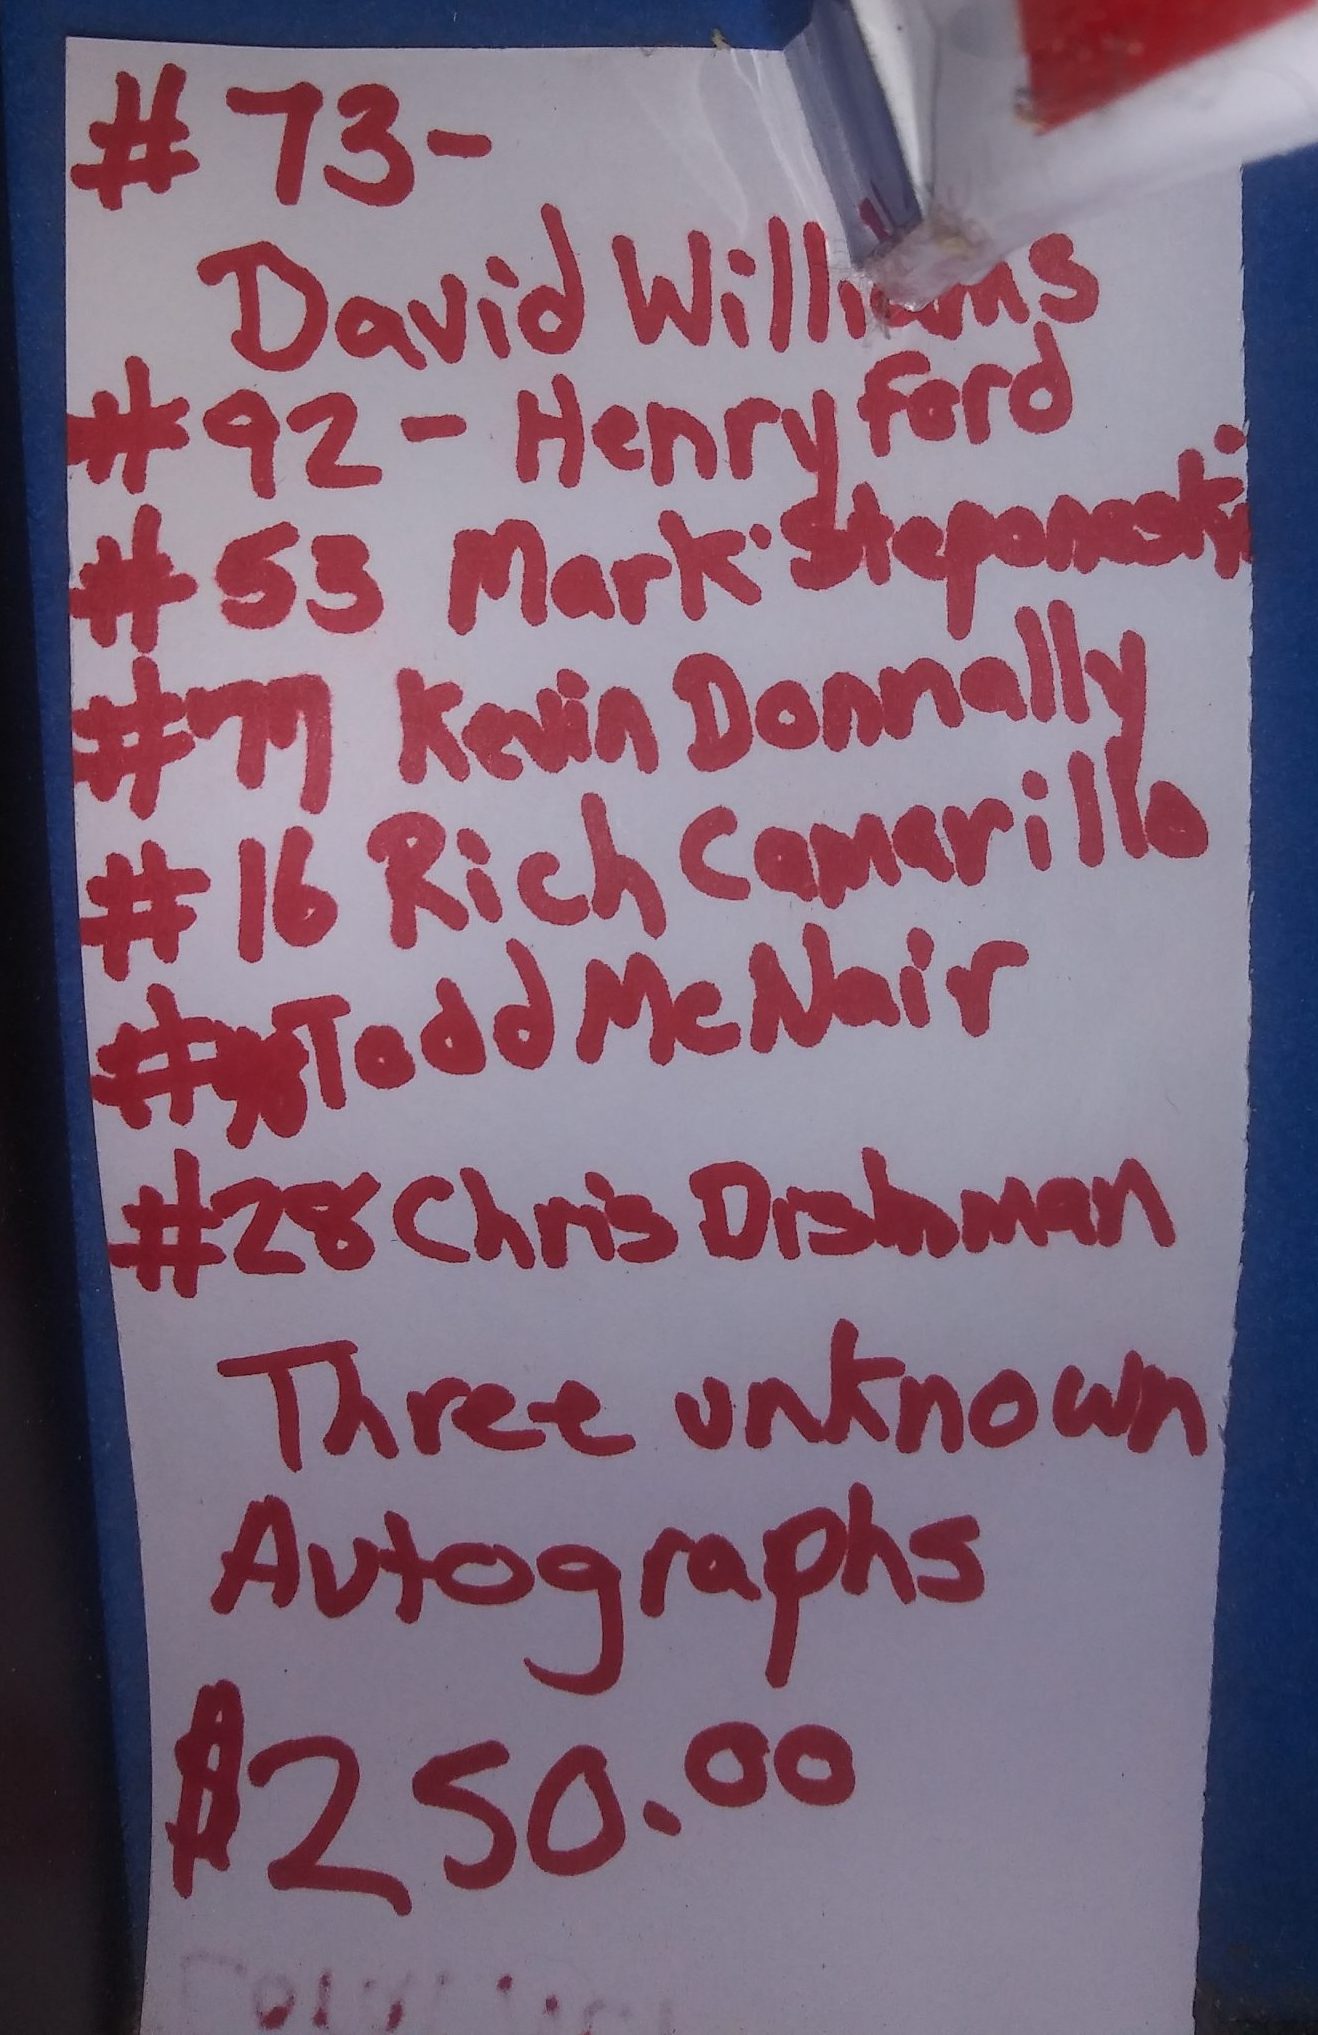 # 73-
David Williams
# 92 - Henry Ford
# 53 Mark Steponaski
# 77 Kevin Donnally
# 16 Rich Camarillo
Todd McNair
#28 Chris Dishman
Three unknown
Autographs
$250.00